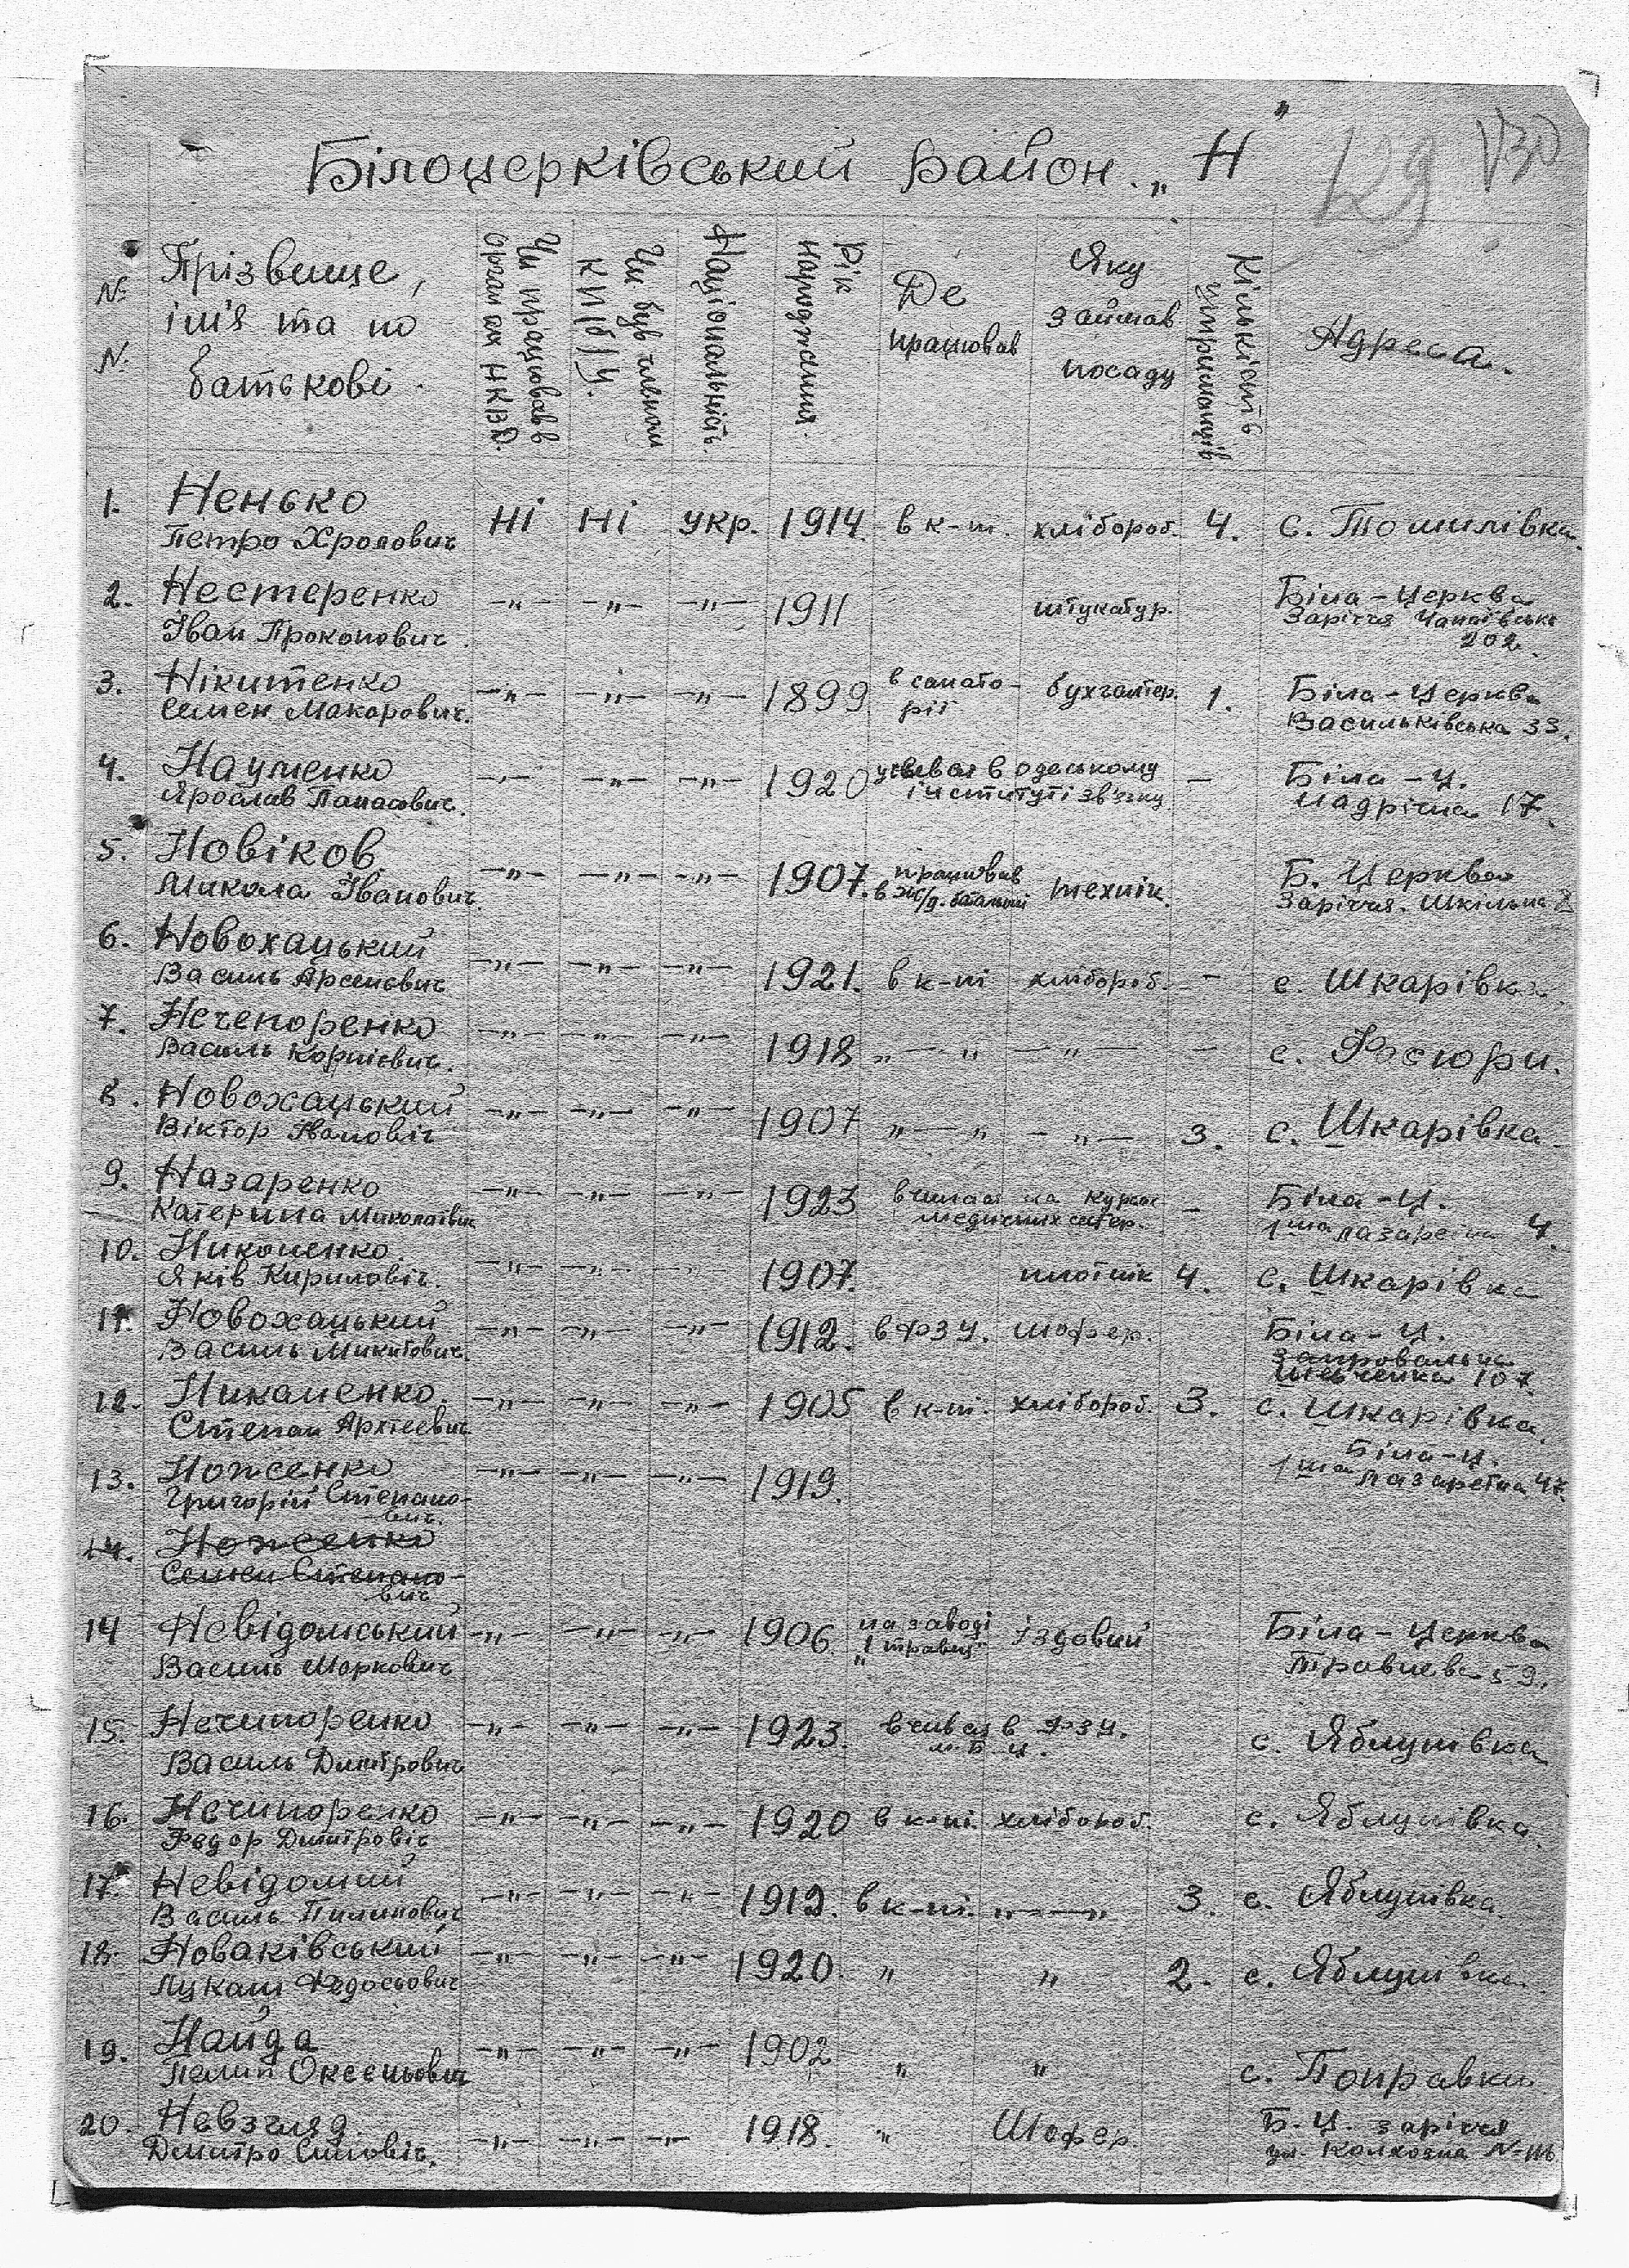 Білоцерківський район. „Н"
129 V30
№ №
Прізвище, ім'я та по батькові.
Чи працював в органах НКВД.
Чи був членом КП(б)У.
Національність.
Рік народження.
Де працював
Яку займав посаду
Кількість утриманців
Адреса.
1. Ненько Ні Ні укр. 1914. в к-пі. хлібороб. 4. с. Томилівка.
Петро
2. Нестеренко —„— —„— —„— 1911 штукатур. Біла-Церква
Іван Прокопович. Заріччя Чапаївська 202.
3. Нікитенко —„— —„— —„— 1899 в санато- бухгалтер. 1. Біла-Церква
Семен Макарович. рії Васильківська 33.
4. Науменко —„— —„— —„— 1920 учився в одеському — Біла-Ц.
Ярослав Панасович. інституті зв'язку Надрічна 17.
5. Новіков —„— —„— —„— 1907. працював технік. Б. Церква
Микола Іванович. в Заріччя. Шкільна
6. Новохацький —„— —„— —„— 1921. в к-пі хлібороб. — с. Шкарівка.
Василь Арсенович
7. Нечепоренко —„— —„— —„— 1918 „—„ —„— — с. Фастови.
Василь Корнієвич.
8. Новохацький —„— —„— —„— 1907 „—„ —„— 3. с. Шкарівка
Віктор Іванович
9. Назаренко —„— —„— —„— 1923 вчилась на курсах — Біла-Ц.
Катерина Миколаївна медичних сестер. 1ша лазаретна 4.
10. Никоненко. —„— —„— —„— 1907. плотнік 4. с. Шкарівка
Яків Кирилович.
11. Новохацький —„— —„— —„— 1912. в ФЗУ. шофер. Біла-Ц.
Василь Микитович. 107.
12. Никоненко. —„— —„— —„— 1905 в к-пі. хлібороб. 3. с. Шкарівка.
Степан
13. Ноженко —„— —„— —„— 1919. Біла-Ц.
Григорій Степано- 1ша лазаретна 47.
вич.
14. Ноженко
Семен Степано-
вич
14 Невідомський —„— —„— —„— 1906. на заводі їздовий Біла-Церква
Василь Маркович „1 травня" Травнева 59.
15. Нечипоренко —„— —„— —„— 1923. вчився в ФЗУ. с. Яблунівка
Василь Дмитрович м. Б Ц.
16. Нечипоренко —„— —„— —„— 1920 в к-пі. хлібороб. с. Яблунівка.
Федор Дмитровіч
17. Невідомий —„— —„— —„— 1912. в к-пі. „—„ 3. с. Яблунівка.
Василь Пилипович
18. Новаківський —„— —„— —„— 1920. „ „ 2. с. Яблунівка.
Лукаш Федосьович
19. Найда —„— —„— —„— 1902 „ „ с. Поправки
Оксеньович
20. Невзгляд. —„— —„— —„— 1918. „ Шофер. Б.-Ц. заріччя
Дмитро ул. Колхозна